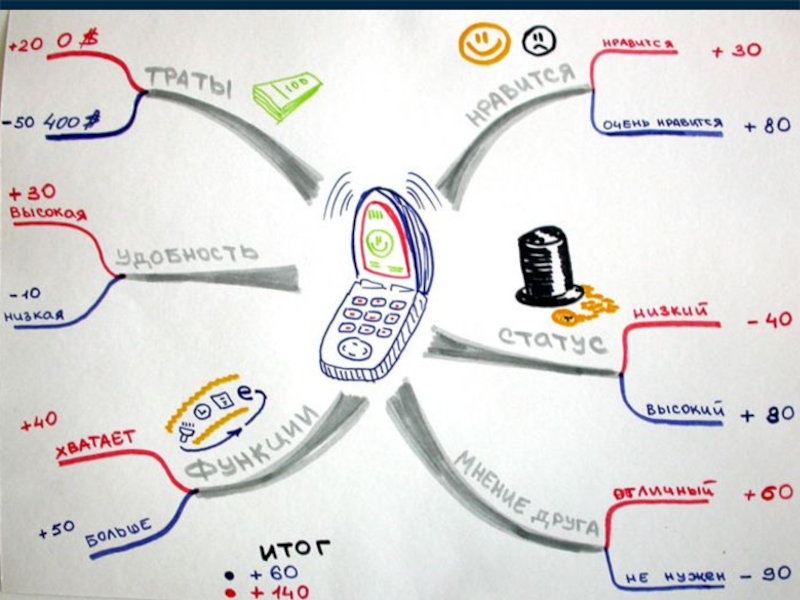 +20 0 $
-50 400 $
ТРАТЫ
100
+30
ВЫСОКАЯ
УДОБНОСТЬ
-10
НИЗКАЯ
+40
ХВАТАЕТ
ФУНКЦИИ
e
+50
БОЛЬШЕ
НРАВИТСЯ
НРАВИТСЯ + 30
ОЧЕНЬ НРАВИТСЯ + 80
СТАТУС
НИЗКИЙ - 40
ВЫСОКИЙ + 80
МНЕНИЕ ДРУГА
ОТЛИЧНЫЙ +60
НЕ НУЖЕН - 90
ИТОГ
• + 60
• + 140